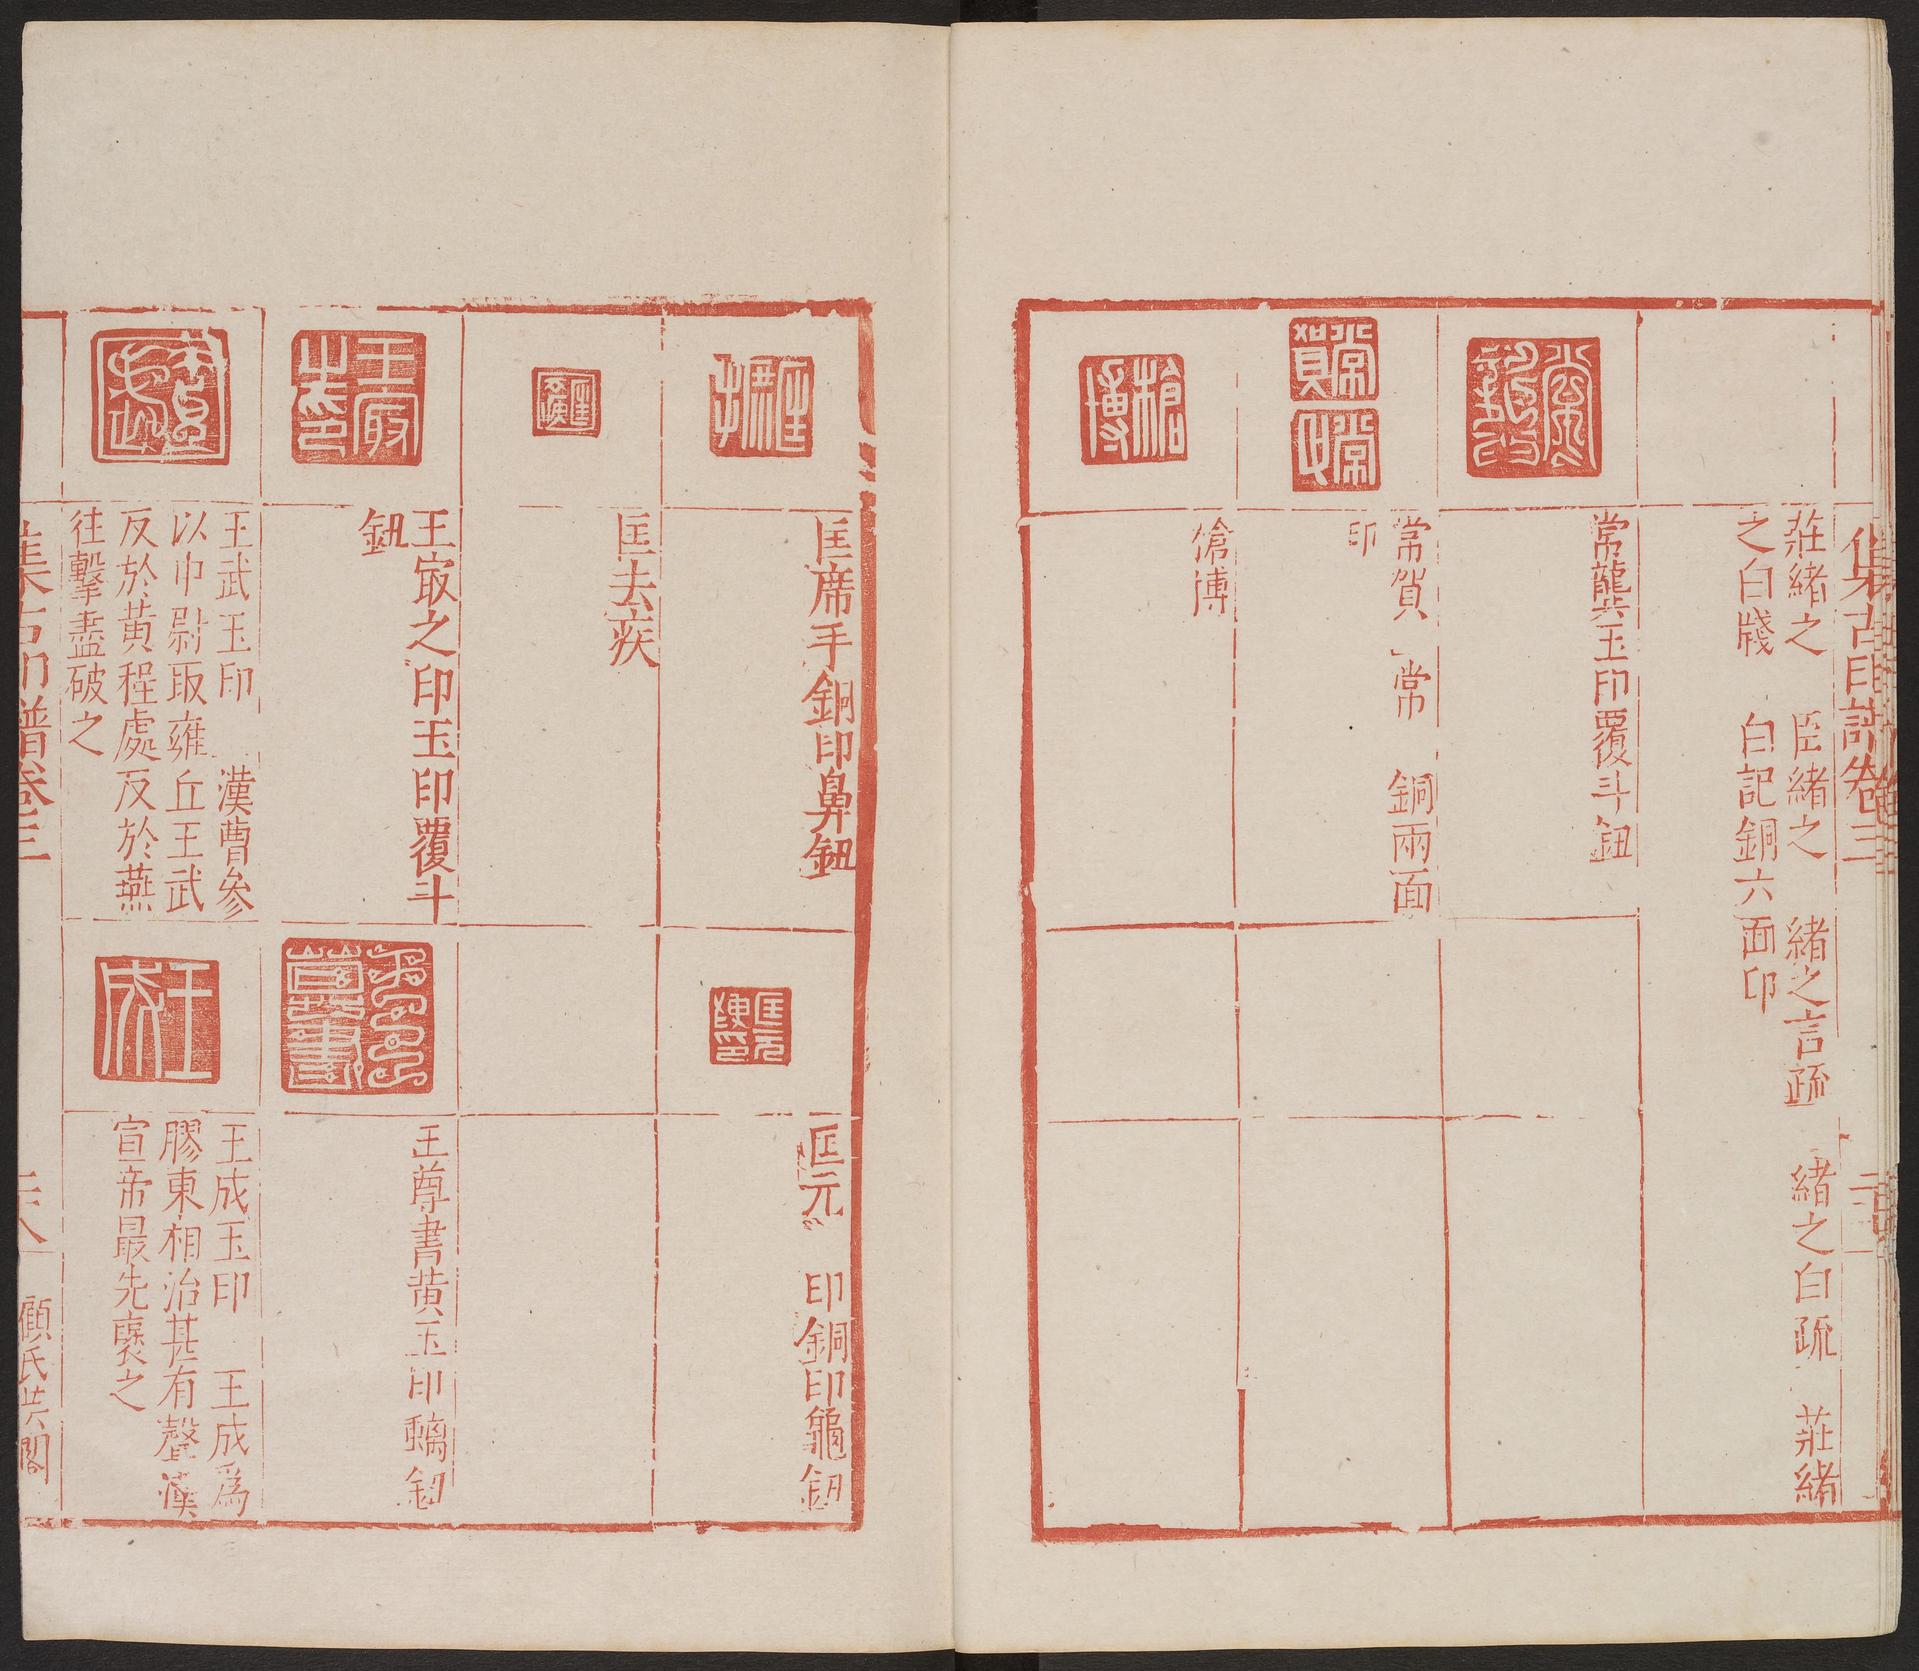 集古印譜卷三
莊緒之　臣緒之　緒之言疏　緒之白疏　莊緒
之白牋　白記銅六面印
常龔玉印覆斗鈕
常賀　常　銅兩面
印
傖博
匡席手銅印鼻鈕
匡元　印銅印龜鈕
匡去疾
王㝡之印玉印覆斗
鈕
王尊書黄玉印螭鈕
王武玉印　漢曹參
以中尉取雍丘王武
反於黄程處反於燕
往擊盡破之
王成玉印　王成爲
膠東相治甚有聲漢
宣帝最先襃之
集古印譜卷三
顧氏芸閣